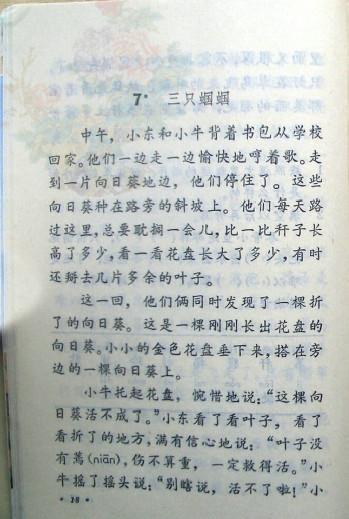 7* 三只蝈蝈
中午，小东和小牛背着书包从学校
回家。他们一边走一边愉快地哼着歌。走
到一片向日葵地边，他们停住了。这些
向日葵种在路旁的斜坡上。他们每天路
过这里，总要耽搁一会儿，比一比秆子长
高了多少，看一看花盘长大了多少，有时
还掰去几片多余的叶子。
这一回，他们俩同时发现了一棵折
了的向日葵。这是一棵刚刚长出花盘的
向日葵。小小的金色花盘垂下来，搭在旁
边的一棵向日葵上。
小牛托起花盘，惋惜地说：“这棵向
日葵活不成了。”小东看了看叶子，看了
看折了的地方，满有信心地说：“叶子没
有蔫(niān)，伤不算重，一定救得活。”小
牛摇了摇头说：“别瞎说，活不了啦！”小
·18·